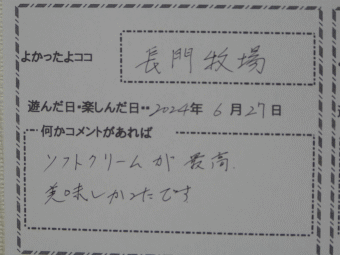 よかったよココ 長門牧場
遊んだ日・楽しんだ日・・2024年6月27日
何かコメントがあれば
ソフトクリームが最高.
美味しかったです